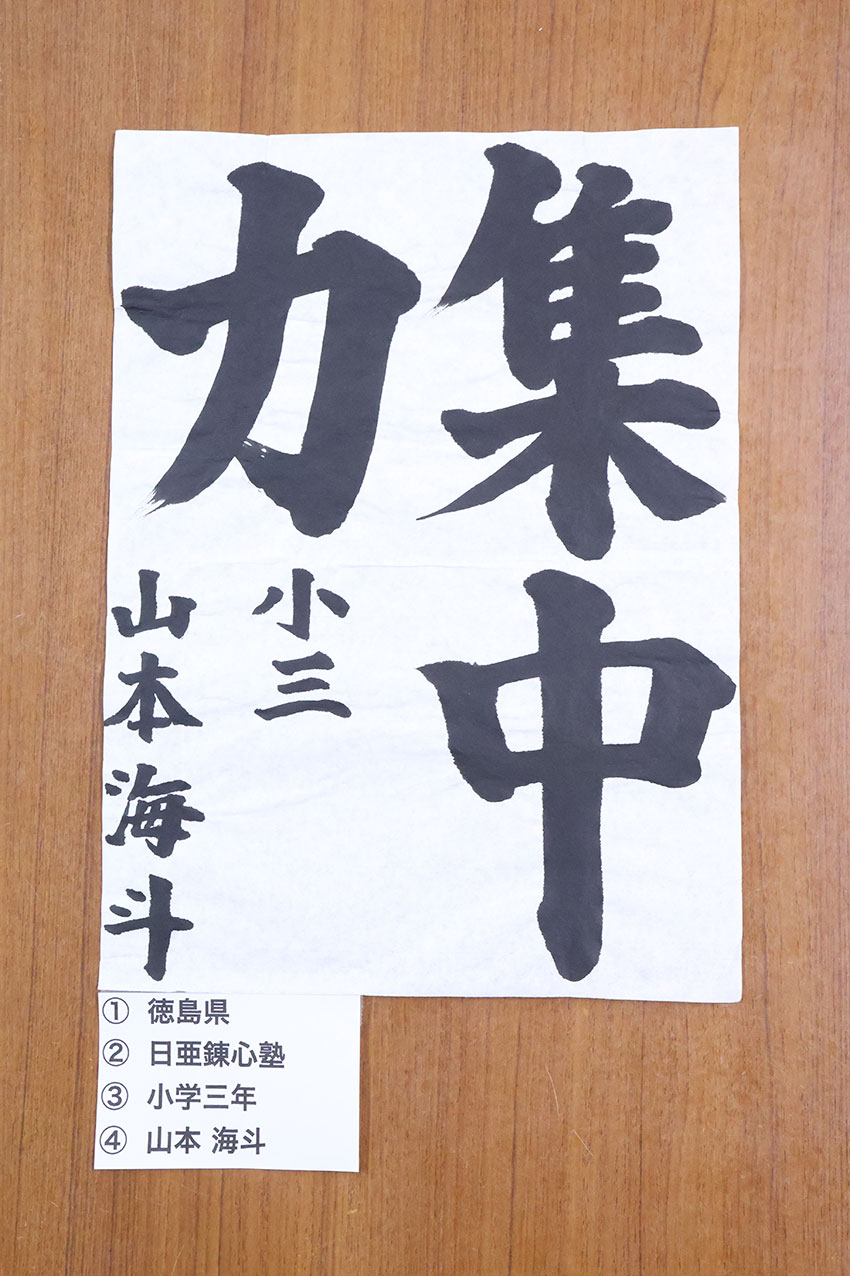 集中
力
小三
山本海斗
① 徳島県
② 日亜錬心塾
③ 小学三年
④ 山本 海斗